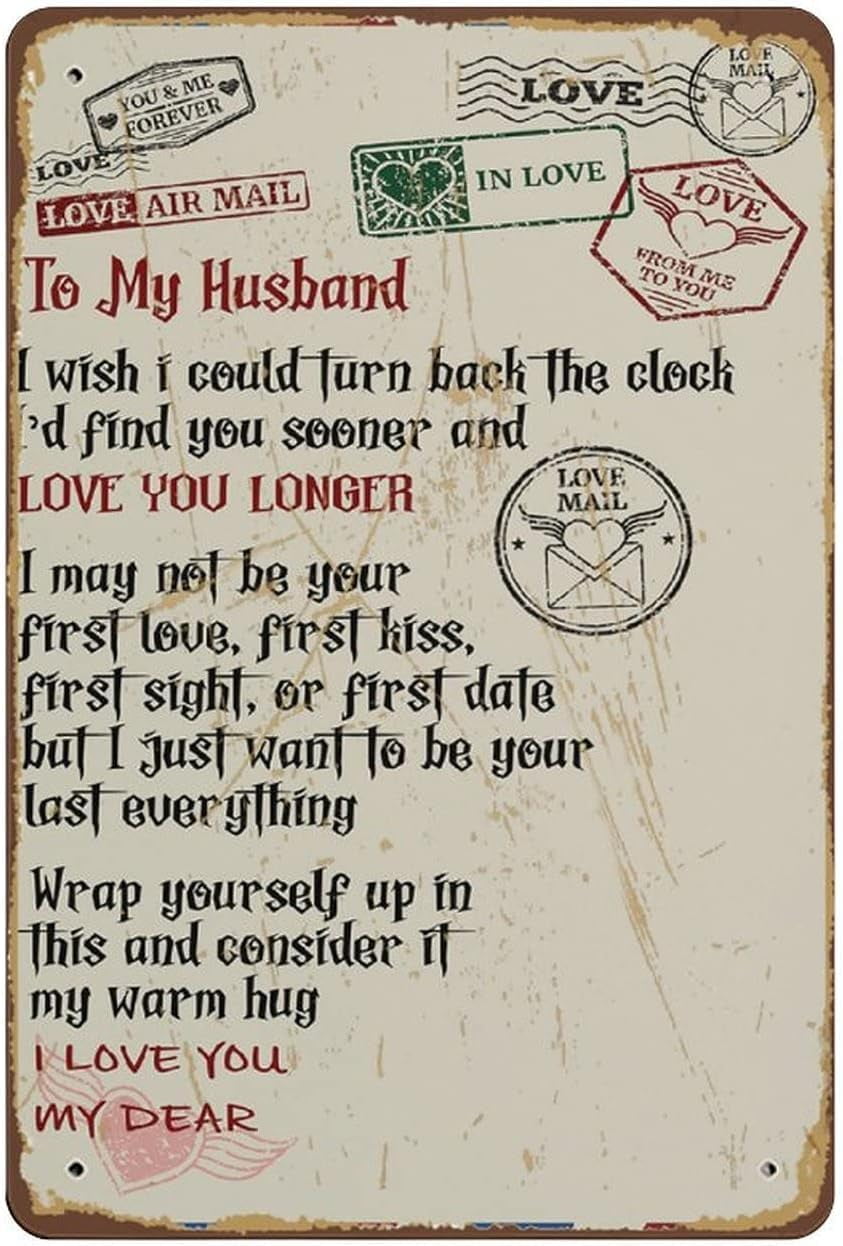 YOU & ME
FOREVER
LOVE
LOVE
LOVE MAIL
LOVE AIR MAIL
IN LOVE
LOVE
FROM ME
TO YOU
To My Husband
I wish i could turn back the clock
I'd find you sooner and
LOVE YOU LONGER
LOVE
MAIL
I may not be your
first love, first kiss,
first sight, or first date
but I just want to be your
last everything
Wrap yourself up in
this and consider it
my warm hug
I LOVE YOU
MY DEAR